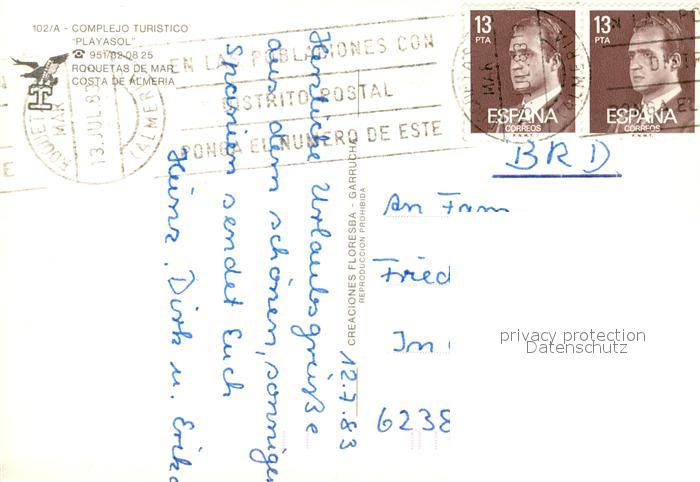 102/A - COMPLEJO TURISTICO
"PLAYASOL"
☎ 951/32 08 25
ROQUETAS DE MAR
COSTA DE ALMERIA
EN LAS POBLACIONES CON
DISTRITO POSTAL
PONGA EL NUMERO DE ESTE
ROQUETAS
MAR
13 JUL 83
(ALMERIA)
13
PTA
ESPAÑA
CORREOS
F.N.M.T.
13
PTA
ESPAÑA
CORREOS
F.N.M.T.
12.7.83
Herzliche Urlaubsgrüße
aus dem schönen, sonnigen
Spanien sendet Euch
Heinz, Dirk u. Erika
CREACIONES FLORESBA - GARRUCHA
REPRODUCCION PROHIBIDA
BRD
An Fam
Fried
In
6238
privacy protection
Datenschutz